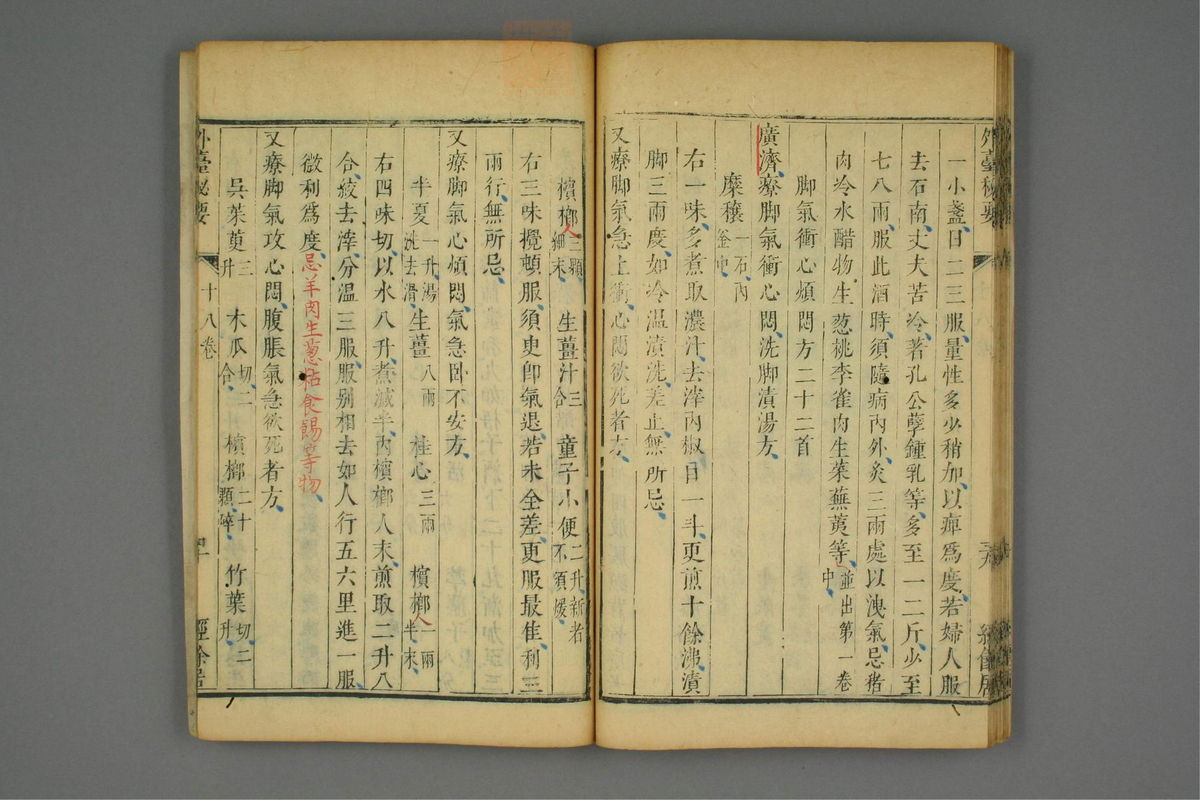 外臺秘要
一小盞日二三服量性多少稍加以痺爲度若婦人服
去石南丈夫苦冷著孔公孽鍾乳等多至一二斤少至
七八兩服此酒時須隨病內外灸三兩處以洩氣忌猪
肉冷水醋物生葱桃李雀肉生菜蕪荑等並出第一卷中
脚氣衝心煩悶方二十二首
廣濟療脚氣衝心悶洗脚漬湯方
糜穰一石內釜中
右一味多煮取濃汁去滓內椒目一斗更煎十餘沸漬
脚三兩度如冷温漬洗差止無所忌
又療脚氣急上衝心悶欲死者方
檳榔人三顆細末 生薑汁三合 童子小便二升新者不須煖
右三味攪頓服須臾卽氣退若未全差更服最佳利三
兩行無所忌
又療脚氣心煩悶氣急卧不安方
半夏一升湯洗去滑 生薑八兩 桂心三兩 檳榔人一兩半末
右四味切以水八升煮減半內檳榔人末煎取二升八
合絞去滓分温三服服别相去如人行五六里進一服
微利爲度忌羊肉生葱粘食餳等物
又療脚氣攻心悶腹脹氣急欲死者方
吳茱萸三升 木瓜切二合 檳榔二十顆碎 竹葉切二升
外臺秘要
十八卷
經餘居